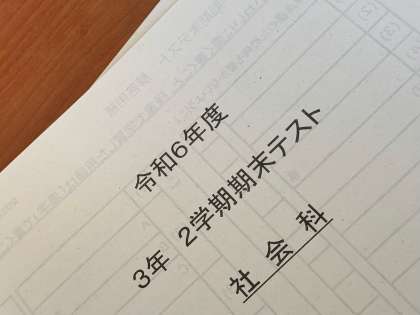 令和6年度
3年 2学期期末テスト
社会科